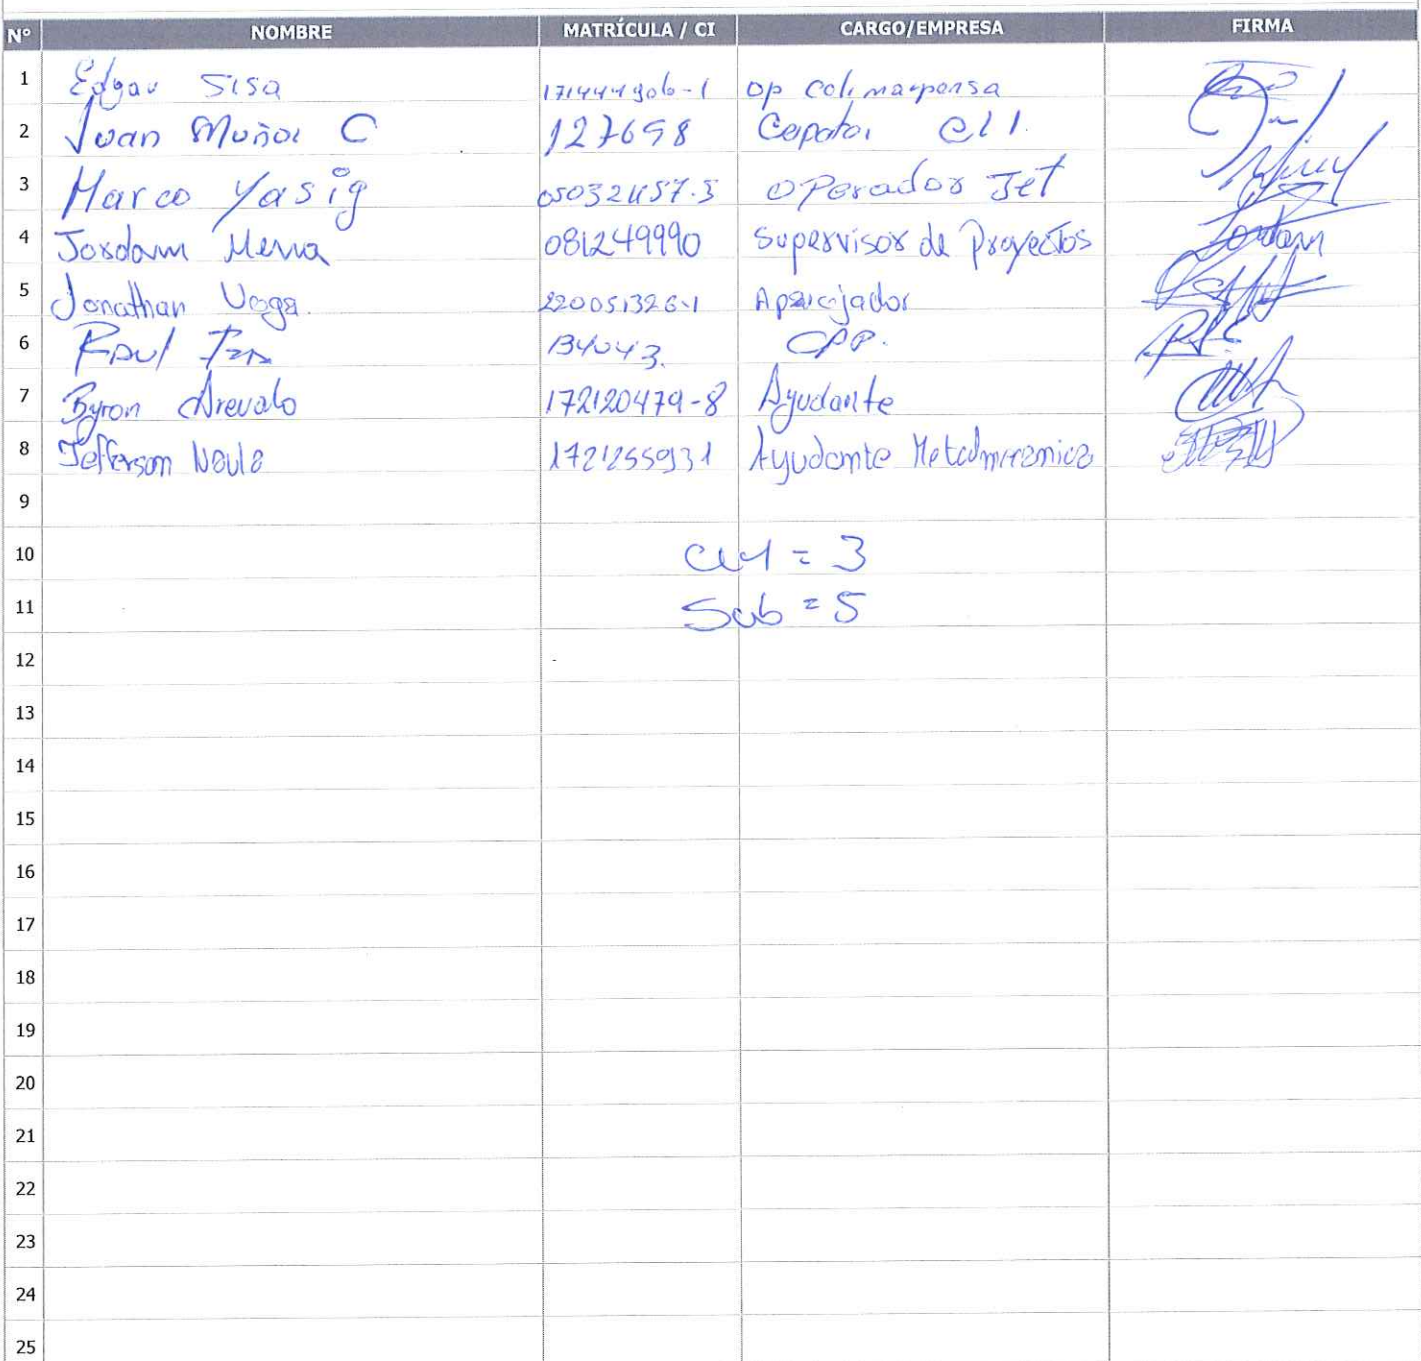 N° NOMBRE MATRÍCULA / CI CARGO/EMPRESA FIRMA
1 Edgar Sisa 171444906-1 op
2 Juan Muñoz C 127698
3 Marco Yasig Operador Jet
4 Jordann Mena 081249990 Supervisor de Proyectos Jordann
5 Jonathan Vega. 220051326-1 Aparejador
6 Raul 134043. CPP.
7 Byron Arevalo 172120479-8 Ayudante
8 Jefferson Naula 1721255931 Ayudante Metalmecanica
9
10 = 3
11 Sub = 5
12
13
14
15
16
17
18
19
20
21
22
23
24
25